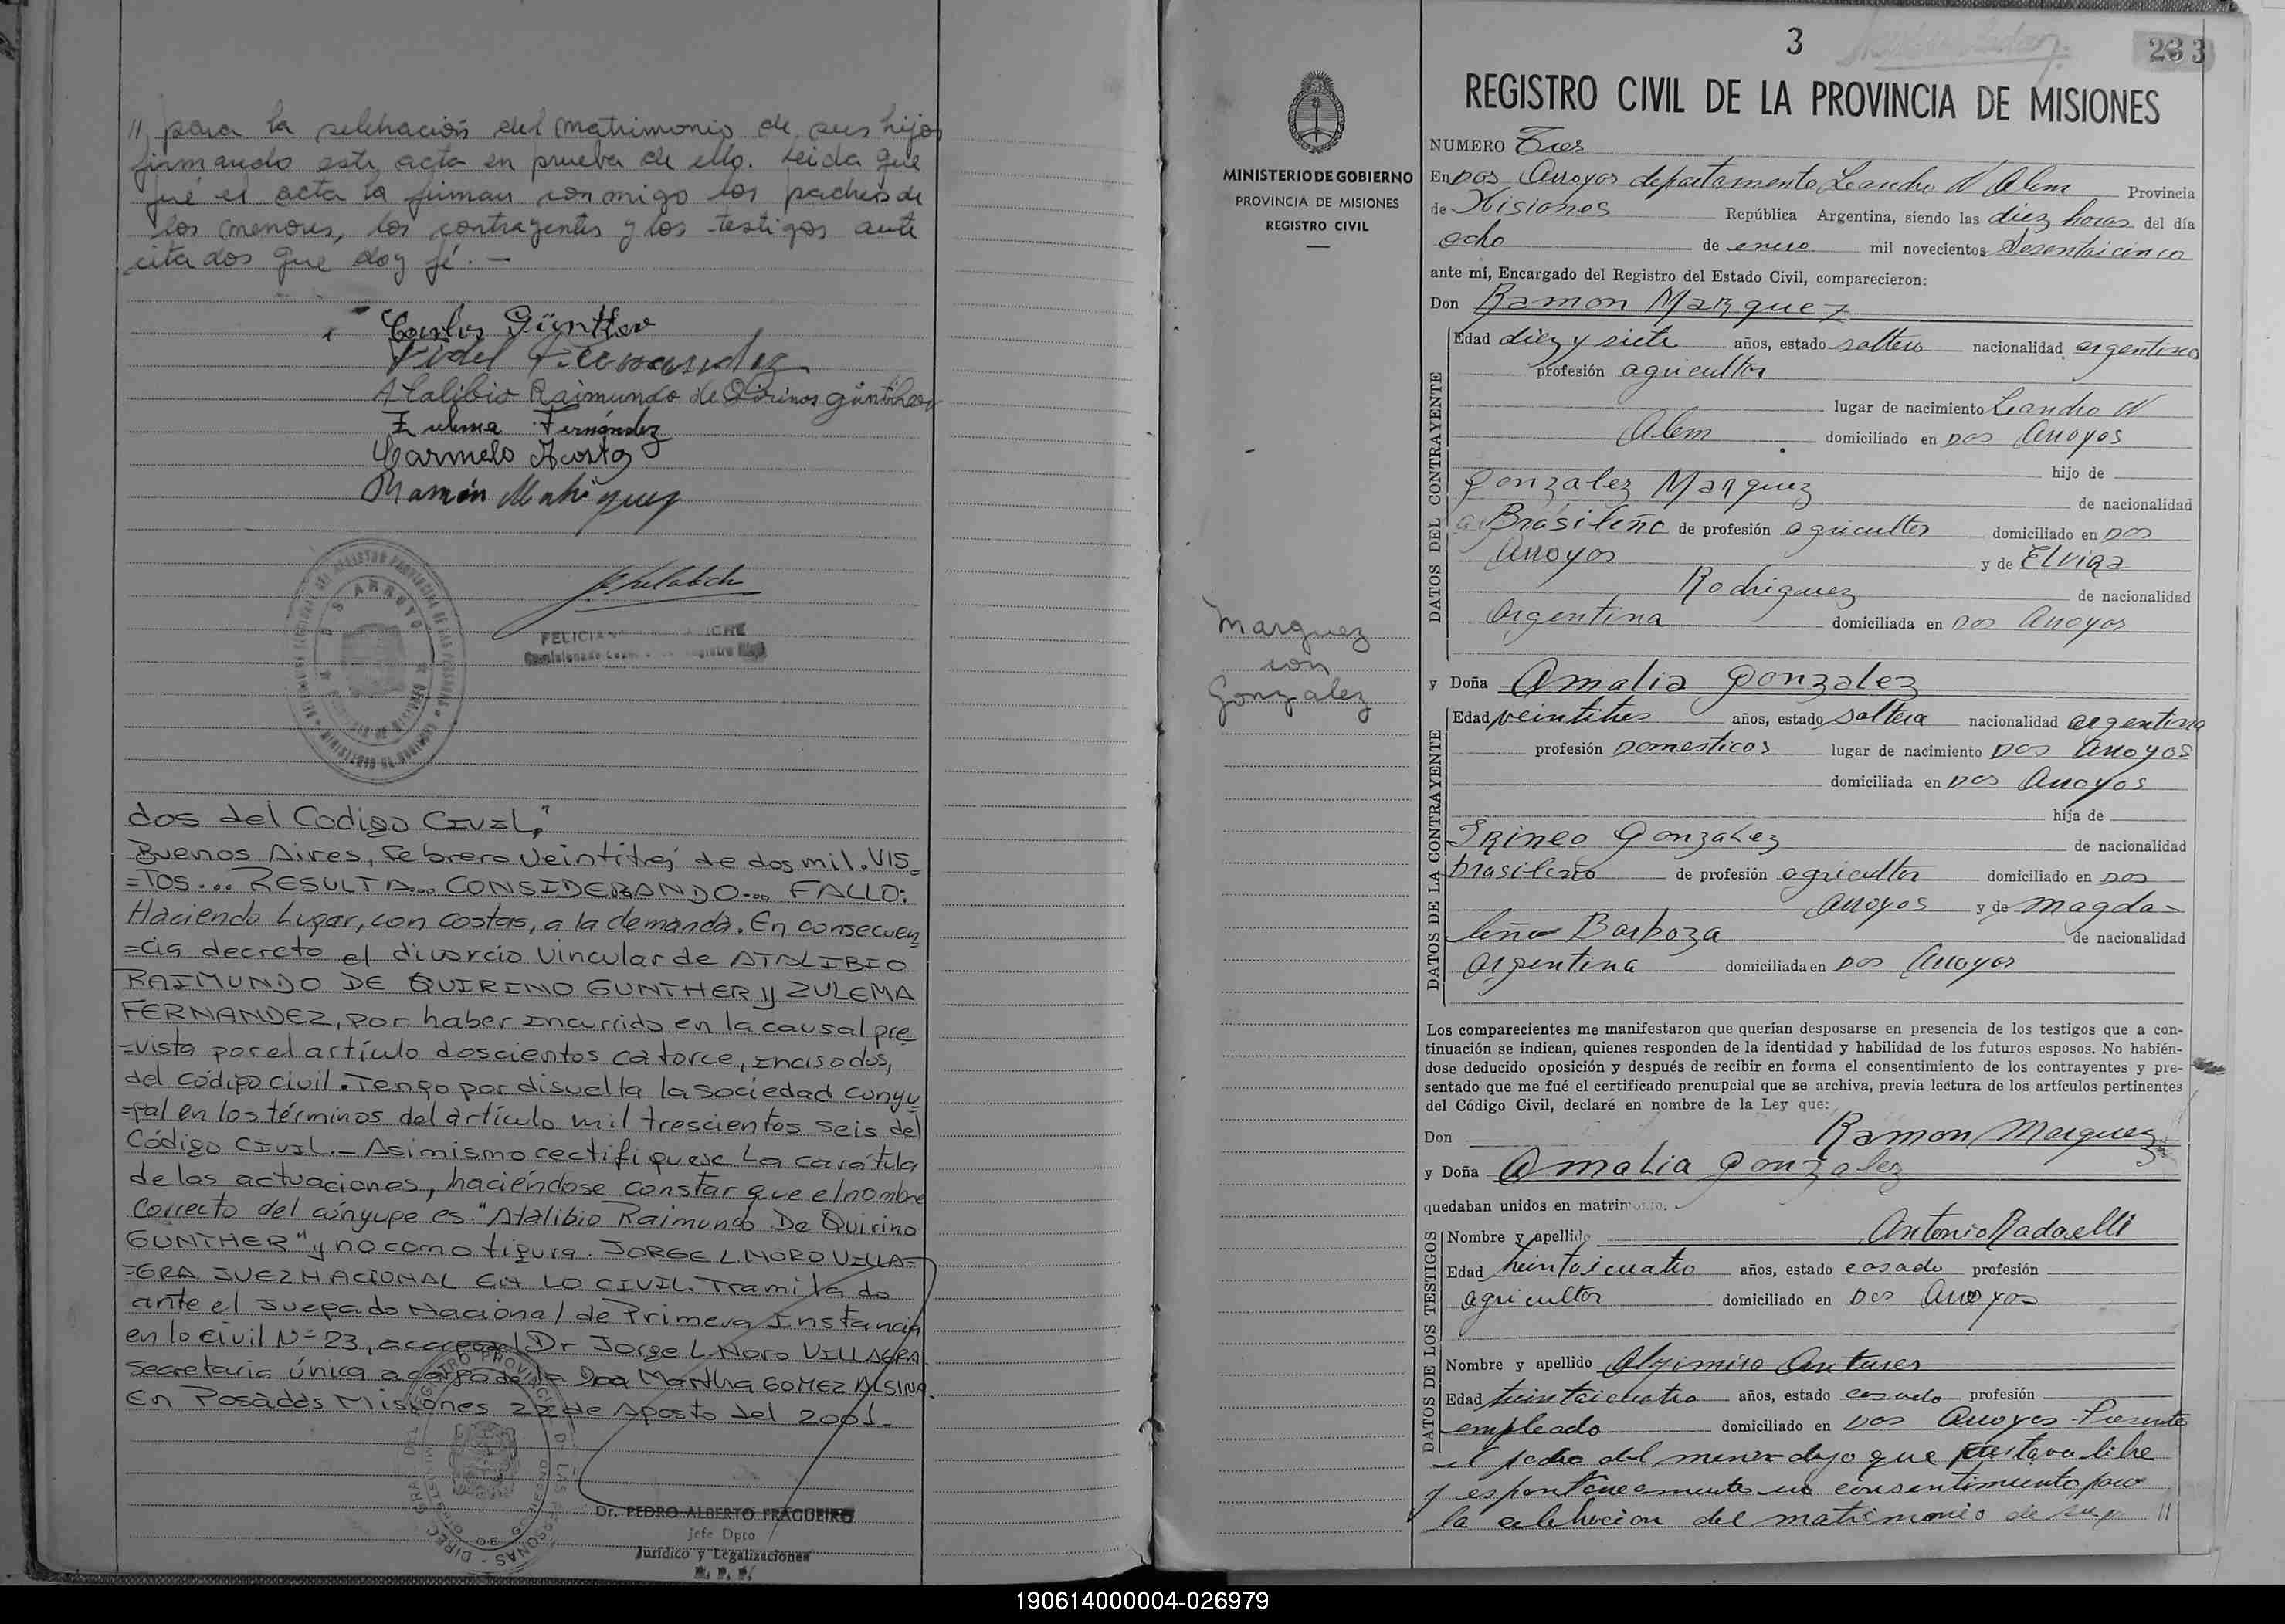 // para la selebración del matrimonio de sus hijos
firmando esta acta en prueba de ello. Leida que
fué el acta la firman conmigo los padres de
los menores, los contrayentes y los testigos ante
citados que doy fé. —
Carlos Günther
Fidel Fernandez
Atalibio Raimundo de Quirino günther
Zulema Fernández
Carmelo Acosta
Ramón Marquez
FELICIANO
dos del Codigo Civil."
Buenos Aires, febrero veintitrés de dos mil. VIS=
=TOS... RESULTA... CONSIDERANDO... FALLO:
Haciendo lugar, con costas, a la demanda. En consecuen
=cia decreto el divorcio vincular de ATALIBIO
RAIMUNDO DE QUIRINO GUNTHER y ZULEMA
FERNANDEZ, por haber incurrido en la causal pre
=vista por el artículo doscientos catorce, inciso dos,
del código civil. Tengo por disuelta la sociedad conyu
=gal en los términos del artículo mil trescientos seis del
Código Civil.- Asimismo rectifiquese la carátula
de las actuaciones, haciéndose constar que el nombre
correcto del cónyuge es "Atalibio Raimundo De Quirino
GUNTHER" y no como figura. JORGE L. NORO VILLA=
=GRA JUEZ NACIONAL EN LO CIVIL. Tramitado
ante el Juzgado Nacional de Primera Instancia
en lo civil Nº 23, a cargo del Dr Jorge L. Noro VILLAGRA
secretaria única a cargo de la Dra Martha GOMEZ ALSINA.
En Posadas Misiones 22 de Agosto del 2001.
Dr. PEDRO ALBERTO FRAGUEIRO
Jefe Dpto
Jurídico y Legalizaciones
R. P. P.
3
233
REGISTRO CIVIL DE LA PROVINCIA DE MISIONES
MINISTERIO DE GOBIERNO
PROVINCIA DE MISIONES
REGISTRO CIVIL
Marquez
con
Gonzalez
NUMERO Tres
En Dos Arroyos departamento Leandro N Alem Provincia
de Misiones República Argentina, siendo las diez horas del día
ocho de enero mil novecientos sesentaicinco
ante mí, Encargado del Registro del Estado Civil, comparecieron:
Don Ramon Marquez
DATOS DEL CONTRAYENTE
Edad diez y siete años, estado soltero nacionalidad argentino
profesión agricultor
lugar de nacimiento Leandro N
Alem domiciliado en Dos Arroyos
hijo de
Gonzalez Marquez de nacionalidad
Brasileña de profesión agricultor domiciliado en Dos
Arroyos y de Elvira
Rodriguez de nacionalidad
Argentina domiciliada en Dos Arroyos
y Doña Amalia Gonzalez
DATOS DE LA CONTRAYENTE
Edad veintitres años, estado soltera nacionalidad argentina
profesión Domesticos lugar de nacimiento Dos Arroyos
domiciliada en Dos Arroyos
hija de
Irineo Gonzalez de nacionalidad
brasileño de profesión agricultor domiciliado en Dos
Arroyos y de Magda-
lena Barboza de nacionalidad
Argentina domiciliada en Dos Arroyos
Los comparecientes me manifestaron que querían desposarse en presencia de los testigos que a con-
tinuación se indican, quienes responden de la identidad y habilidad de los futuros esposos. No habién-
dose deducido oposición y después de recibir en forma el consentimiento de los contrayentes y pre-
sentado que me fué el certificado prenupcial que se archiva, previa lectura de los artículos pertinentes
del Código Civil, declaré en nombre de la Ley que:
Don Ramon Marquez
y Doña Amalia Gonzalez
quedaban unidos en matrimonio.
DATOS DE LOS TESTIGOS
Nombre y apellido Antonio Radaelli
Edad treintaicuatro años, estado casado profesión
agricultor domiciliado en Dos Arroyos
Nombre y apellido Alzimiro Antunes
Edad treintaicuatro años, estado casado profesión
empleado domiciliado en Dos Arroyos Presente
el padre del menor dijo que prestava libre
y espontaneamente su consentimiento para
la celebracion del matrimonio de su //
190614000004-026979